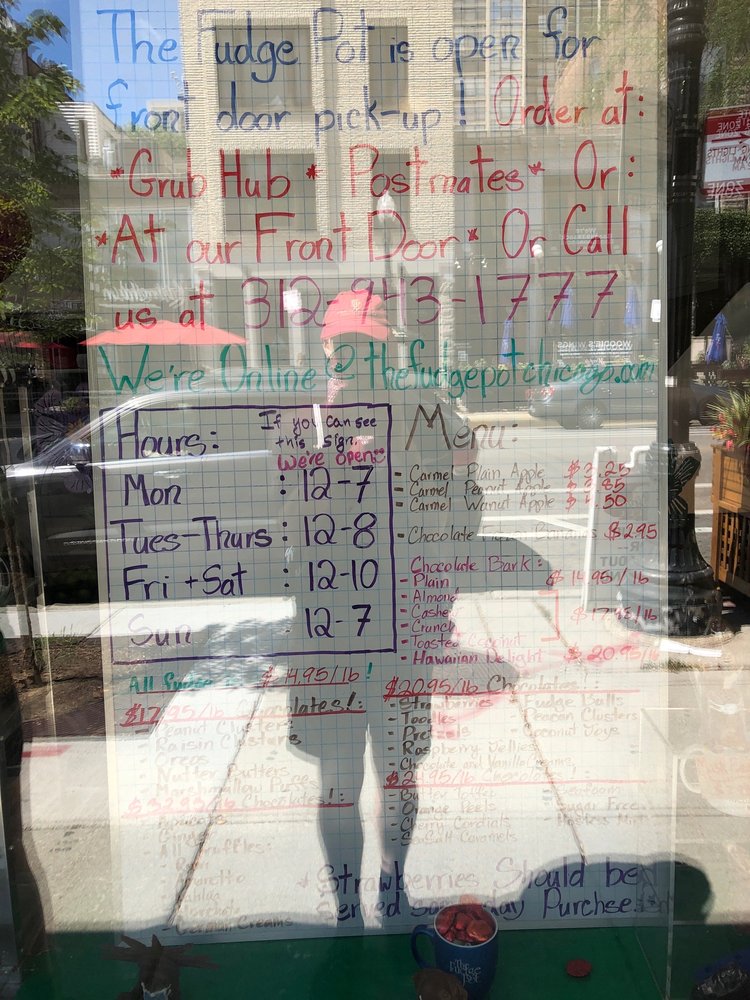 The Fudge Pot is open for
front door pick-up! Order at:
*Grub Hub * Postmates* Or:
*At our Front Door* Or Call
us at 312-943-1777
We're Online @ thefudgepotchicago.com
Hours: If you can see
this sign,
We're open!
Mon : 12-7
Tues-Thurs : 12-8
Fri + Sat : 12-10
Sun : 12-7
Menu:
- Carmel Plain Apple
- Carmel Peanut Apple
- Carmel Walnut Apple
- Chocolate $2.95
Chocolate Bark:
- Plain $14.95/lb
- Almond
- Cashew
- Crunch
- Toasted Coconut
- Hawaiian Delight $20.95/lb
All fudge $14.95/lb!
$17.95/lb Chocolates!:
- Peanut Clusters
- Raisin Clusters
- Oreos
- Nutter Butters
- Marshmallow Puffs
Chocolates!:
- German Creams
$20.95/lb Chocolates!:
- Strawberries
- Toodles
- Pretzels
- Raspberry Jellies
- Chocolate and Vanilla Creams
- Fudge Balls
- Peacan Clusters
- Coconut Joys
$24.95/lb Chocolates!:
- Butter Toffee
- Orange Peels
- Cherry Cordials
- Sea Salt Caramels
Sugar Free
* Strawberries Should be
Served Day Purchse
WOODIE'S WINGS
The
Fudge
Pot